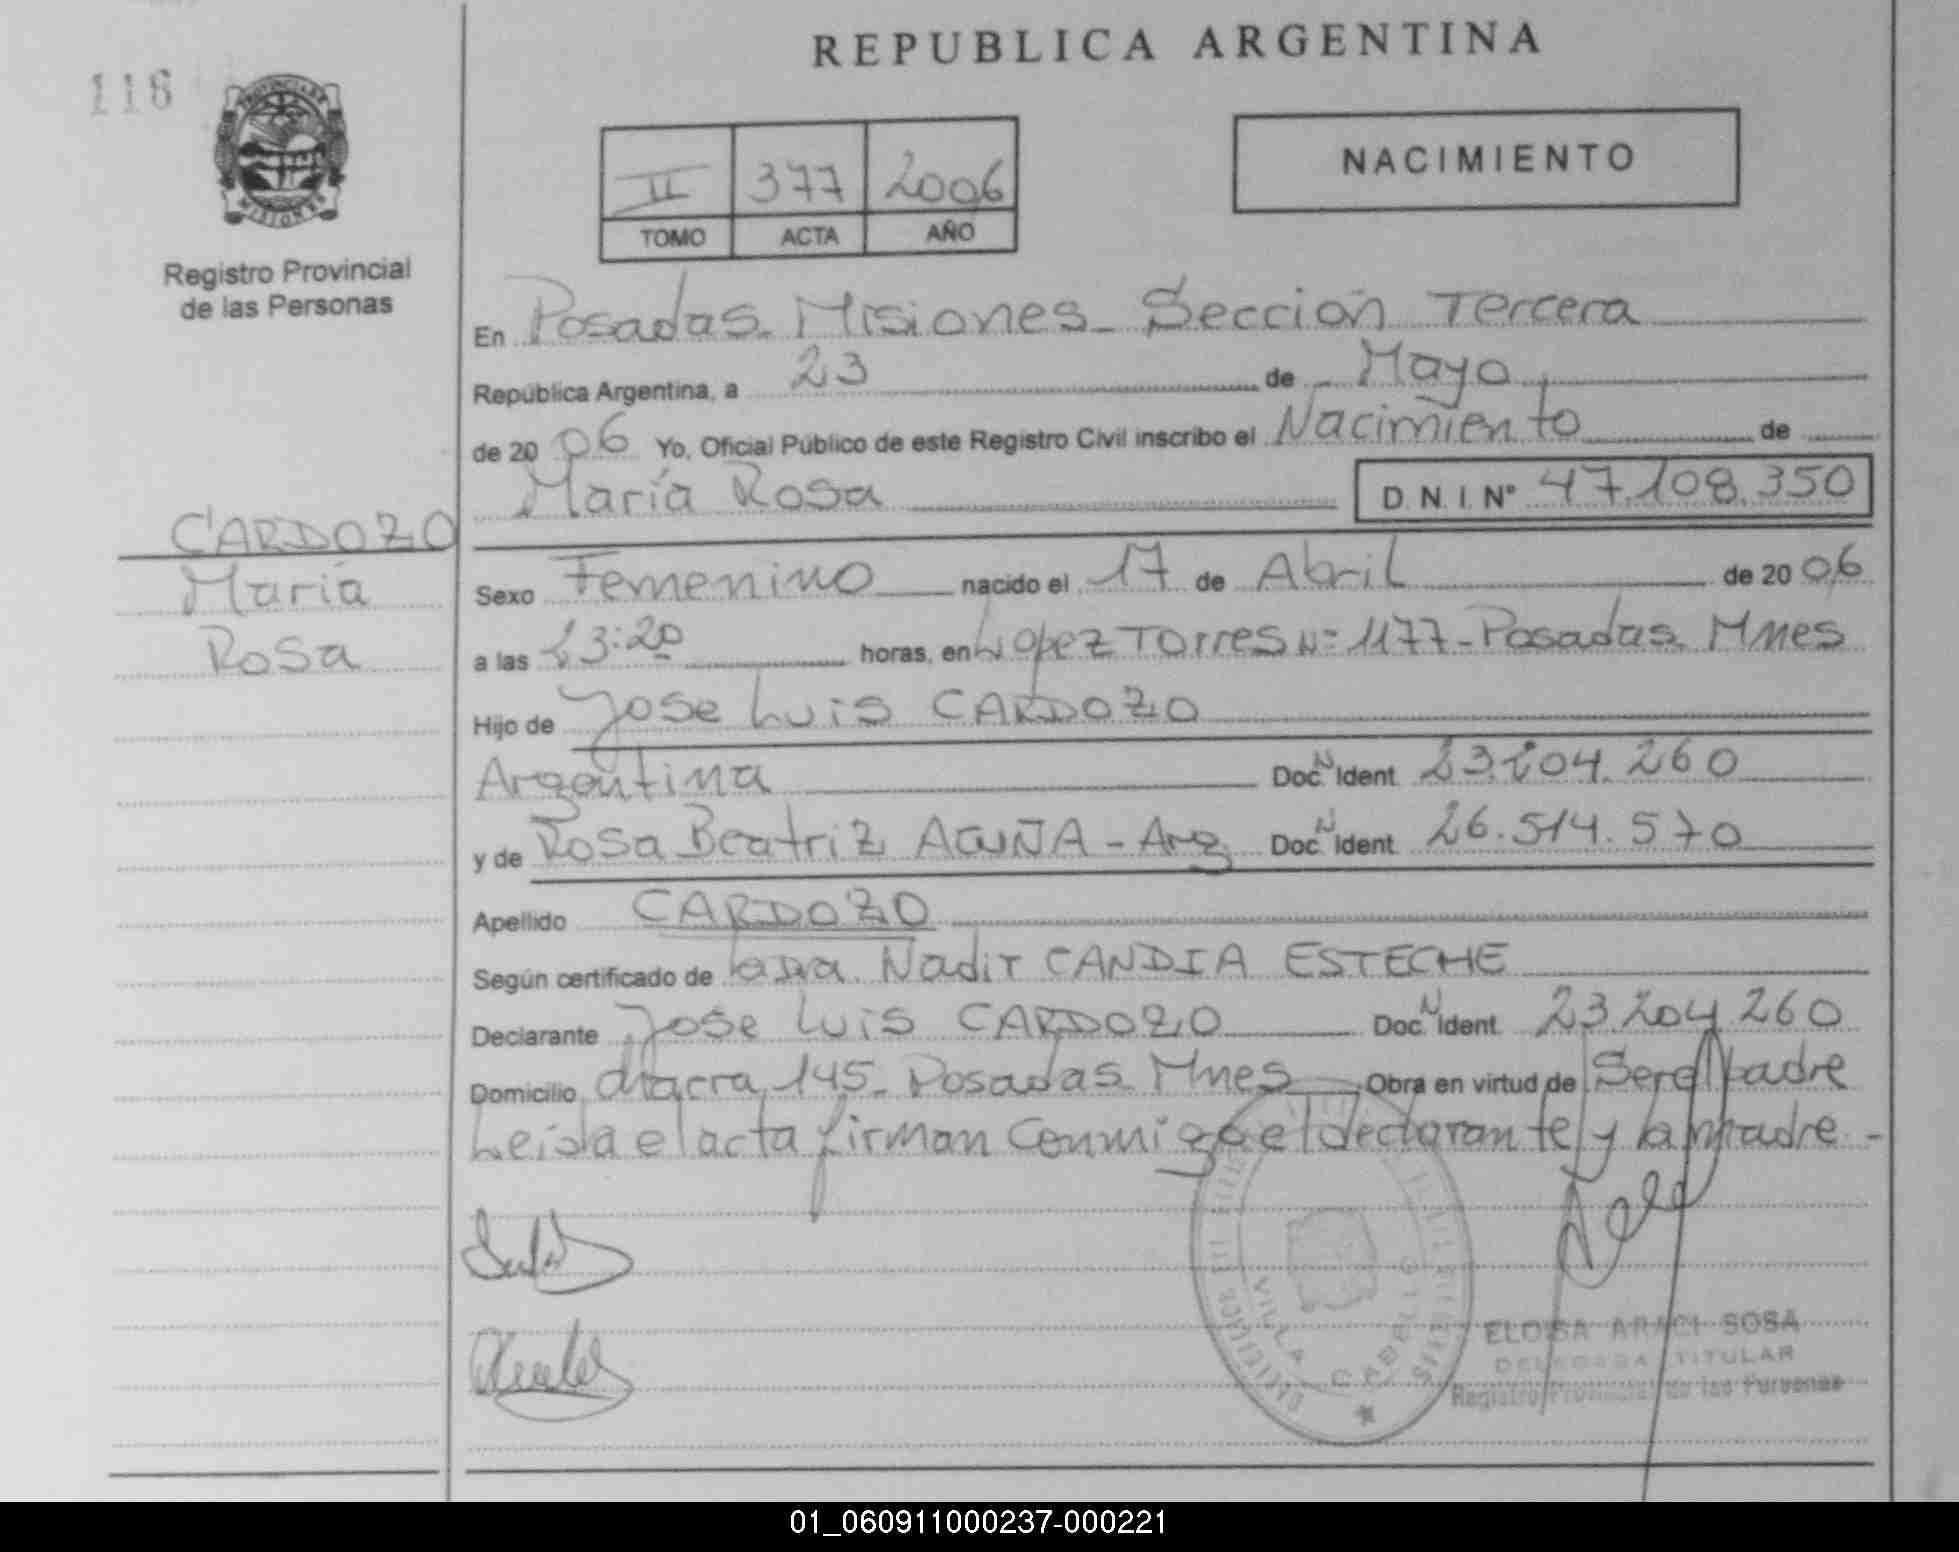 REPUBLICA ARGENTINA
116
PROVINCIA DE
MISIONES
Registro Provincial
de las Personas
II 377 2006
TOMO ACTA AÑO
NACIMIENTO
En Posadas Misiones Sección Tercera
República Argentina, a 23 de Mayo
de 2006 Yo, Oficial Público de este Registro Civil inscribo el Nacimiento de
María Rosa D.N.I. Nº 47.108.350
CARDOZO
María
Rosa
Sexo Femenino nacido el 17 de Abril de 2006
a las 23:20 horas, en Lopez Torres Nº 1177 - Posadas Mnes
Hijo de Jose Luis CARDOZO
Argentina Doc. N Ident 23.204.260
y de Rosa Beatriz ACUÑA - Arg Doc. N Ident 26.514.570
Apellido CARDOZO
Según certificado de la Dra. Nadir CANDIA ESTECHE
Declarante Jose Luis CARDOZO Doc. N Ident 23.204.260
Domicilio chacra 145 - Posadas Mnes Obra en virtud de Ser el padre
Leida el acta firman conmigo el declarante y la madre -
VILLA CABELLO
ELOISA ARACI SOSA
DELEGADA TITULAR
Registro Provincial de las Personas
01_060911000237-000221